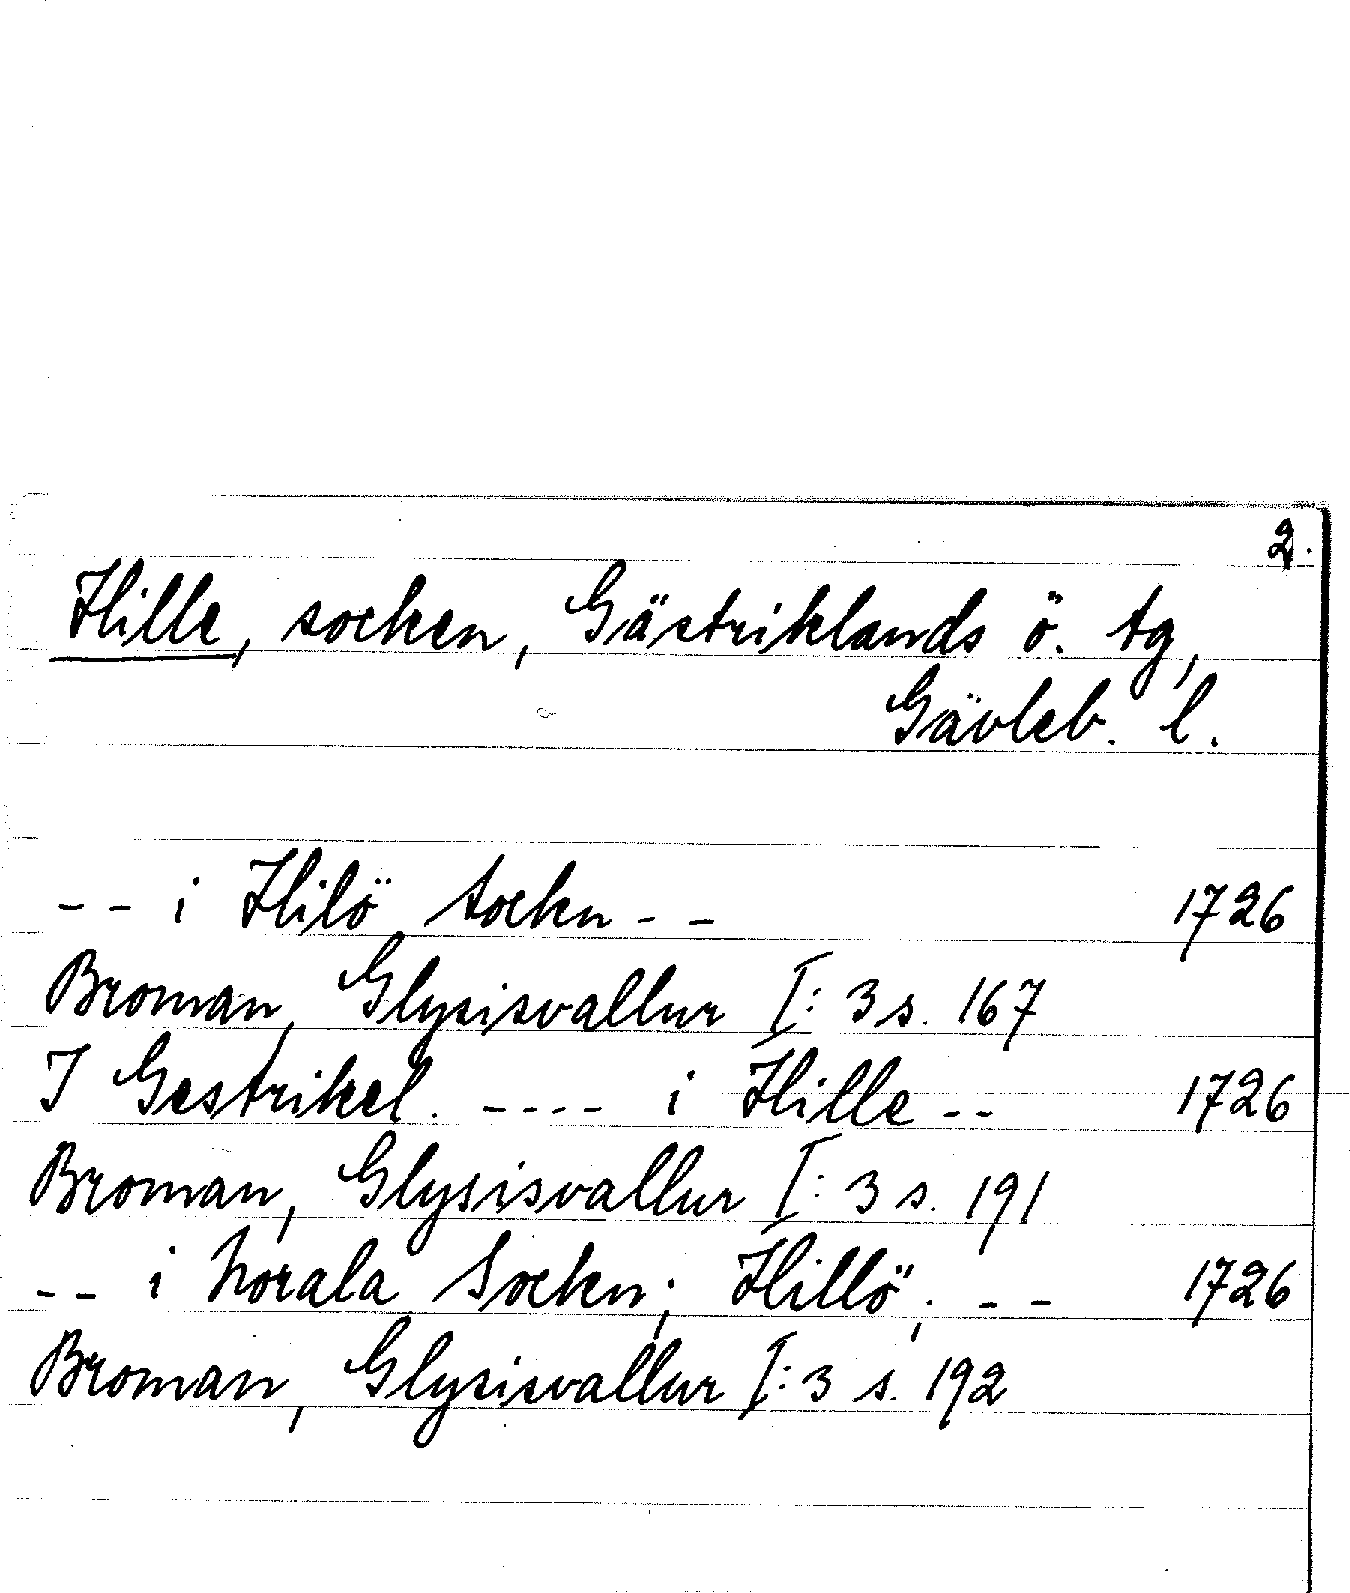 2.
Hille, socken, Gästriklands ö. tg,
Gävleb. l.
-- i Hilö Sockn -- 1726
Broman, Glysisvallur I:3 s. 167
I Gestrikel. ---- i Hille -- 1726
Broman, Glysisvallur I:3 s. 191
-- i Norala Sockn; Hillö; -- 1726
Broman, Glysisvallur I:3 s. 192